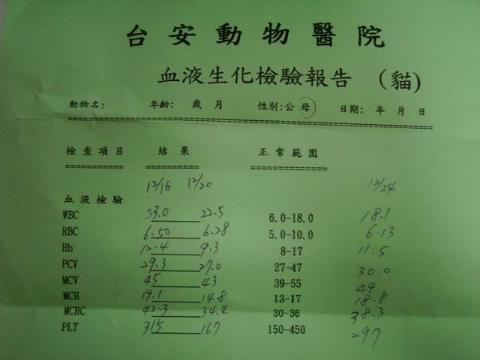 台安動物醫院
血液生化檢驗報告 (貓)
動物名: 年齡: 歲 月 性別:公 母 日期: 年 月 日
檢查項目 結果 正常範圍
12/16 12/20 12/24
血液檢驗
WBC 53.0 22.5 6.0-18.0 18.1
RBC 6.50 6.28 5.0-10.0 6.13
Hb 12.4 9.3 8-17 11.5
PCV 29.3 27.0 27-47 30.0
MCV 45 43 39-55 49
MCH 19.1 14.8 13-17 18.8
MCHC 42.3 34.4 30-36 38.3
PLT 315 167 150-450 297